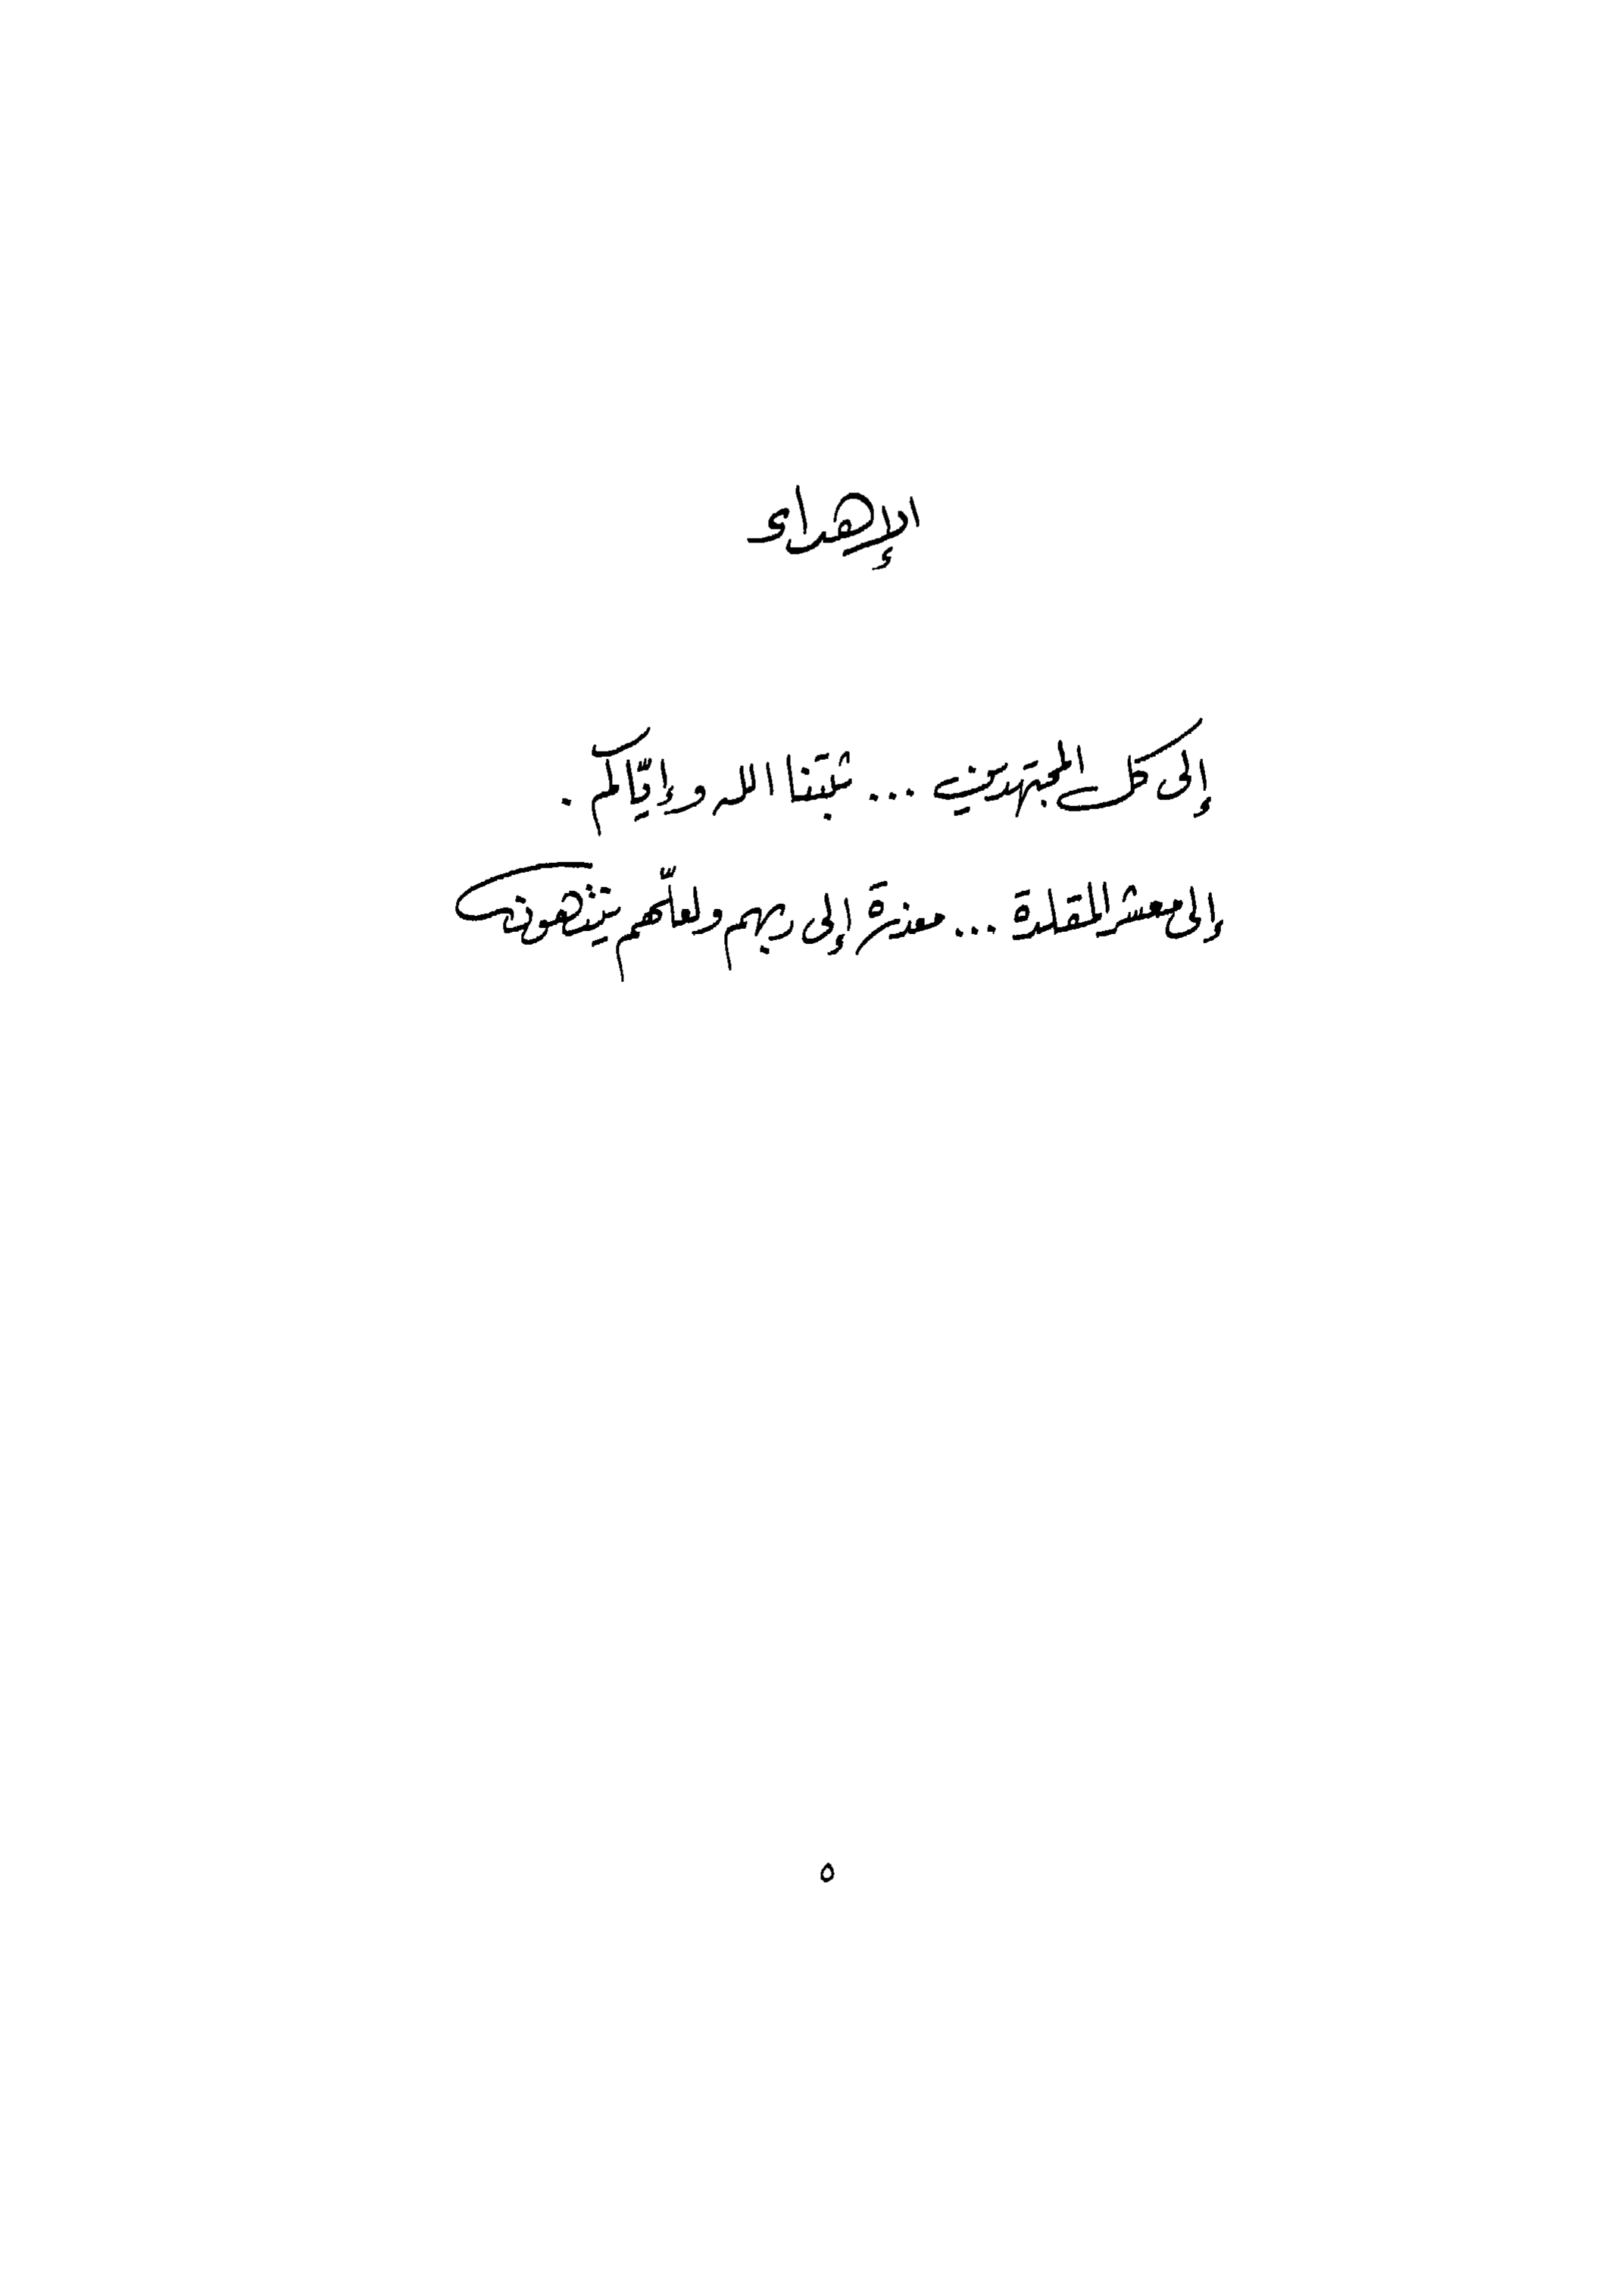 الإهداء
إلى كل المجتهدين ... ثبتنا الله وإيّاكم.
إلى معشر المقلدة ... معذرة إلى ربهم ولعلّهم ينتهون
٥